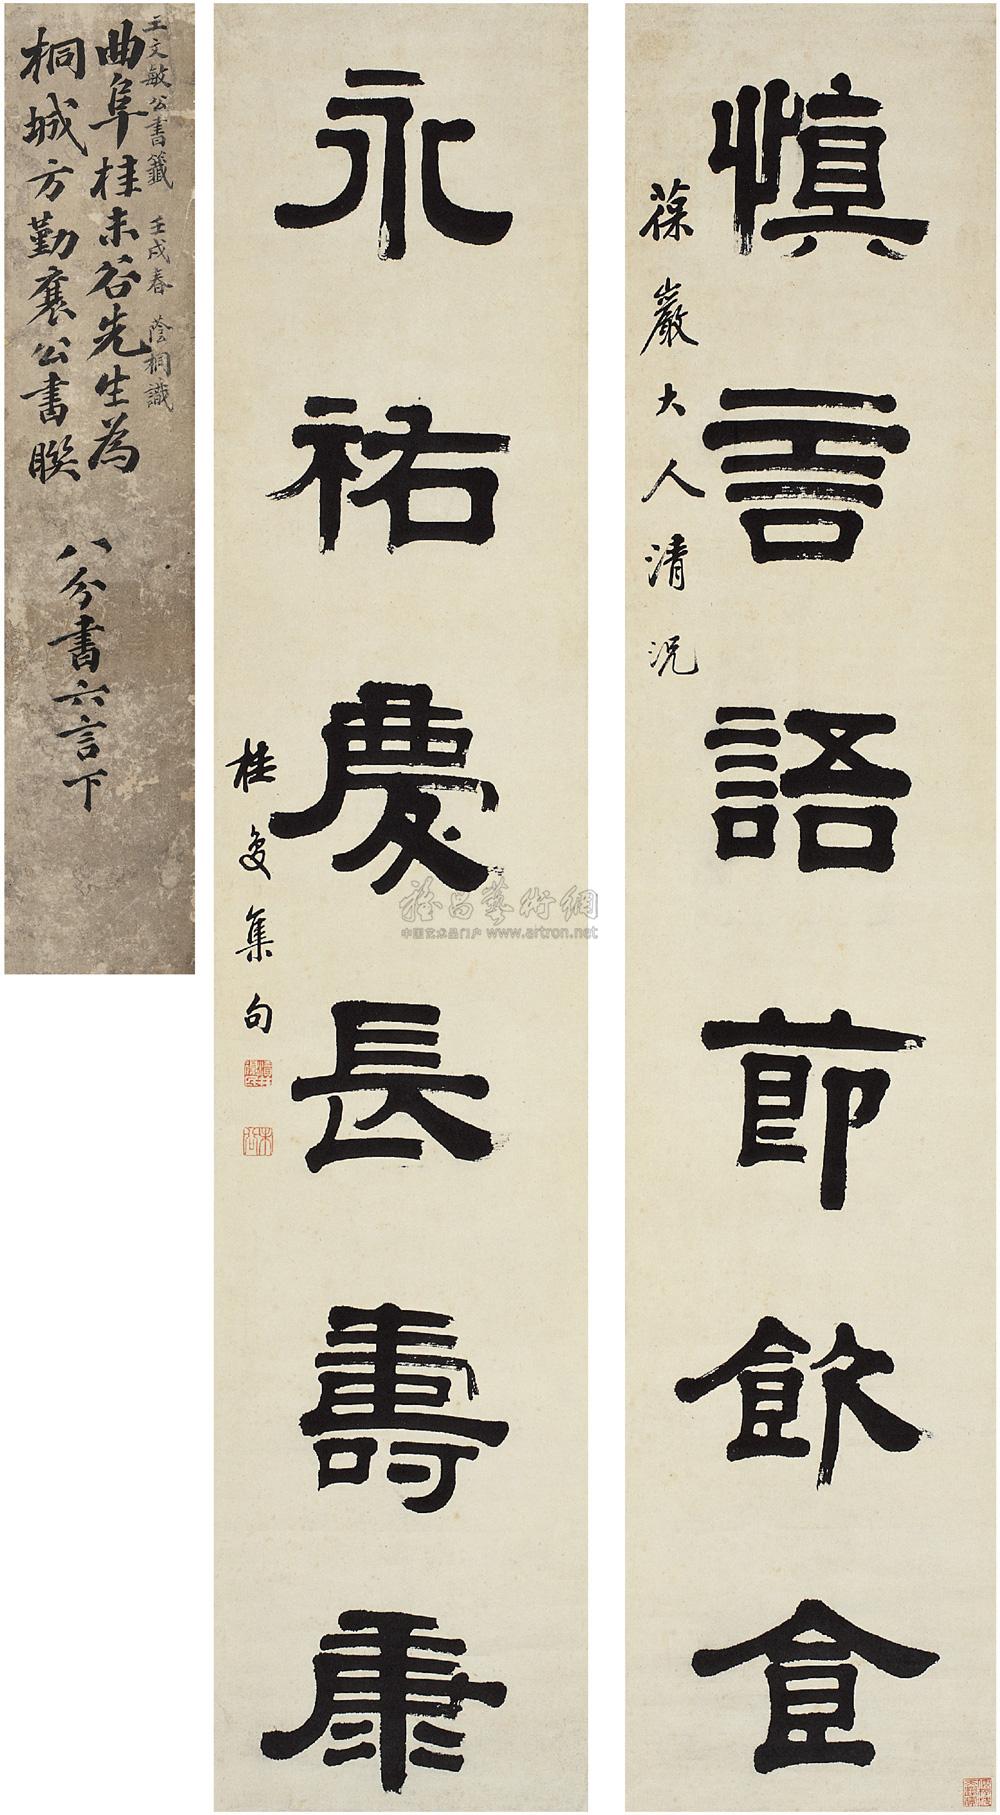 慎言語節飲食
葆巖大人清況
永祐慶長壽康
桂馥集句
未谷
王文敏公書籤 壬戌春 蔭桐識
曲阜桂未谷先生為
桐城方勤襄公書聯
八分書六言下
雅昌藝術網
中国艺术品门户 www.artron.net